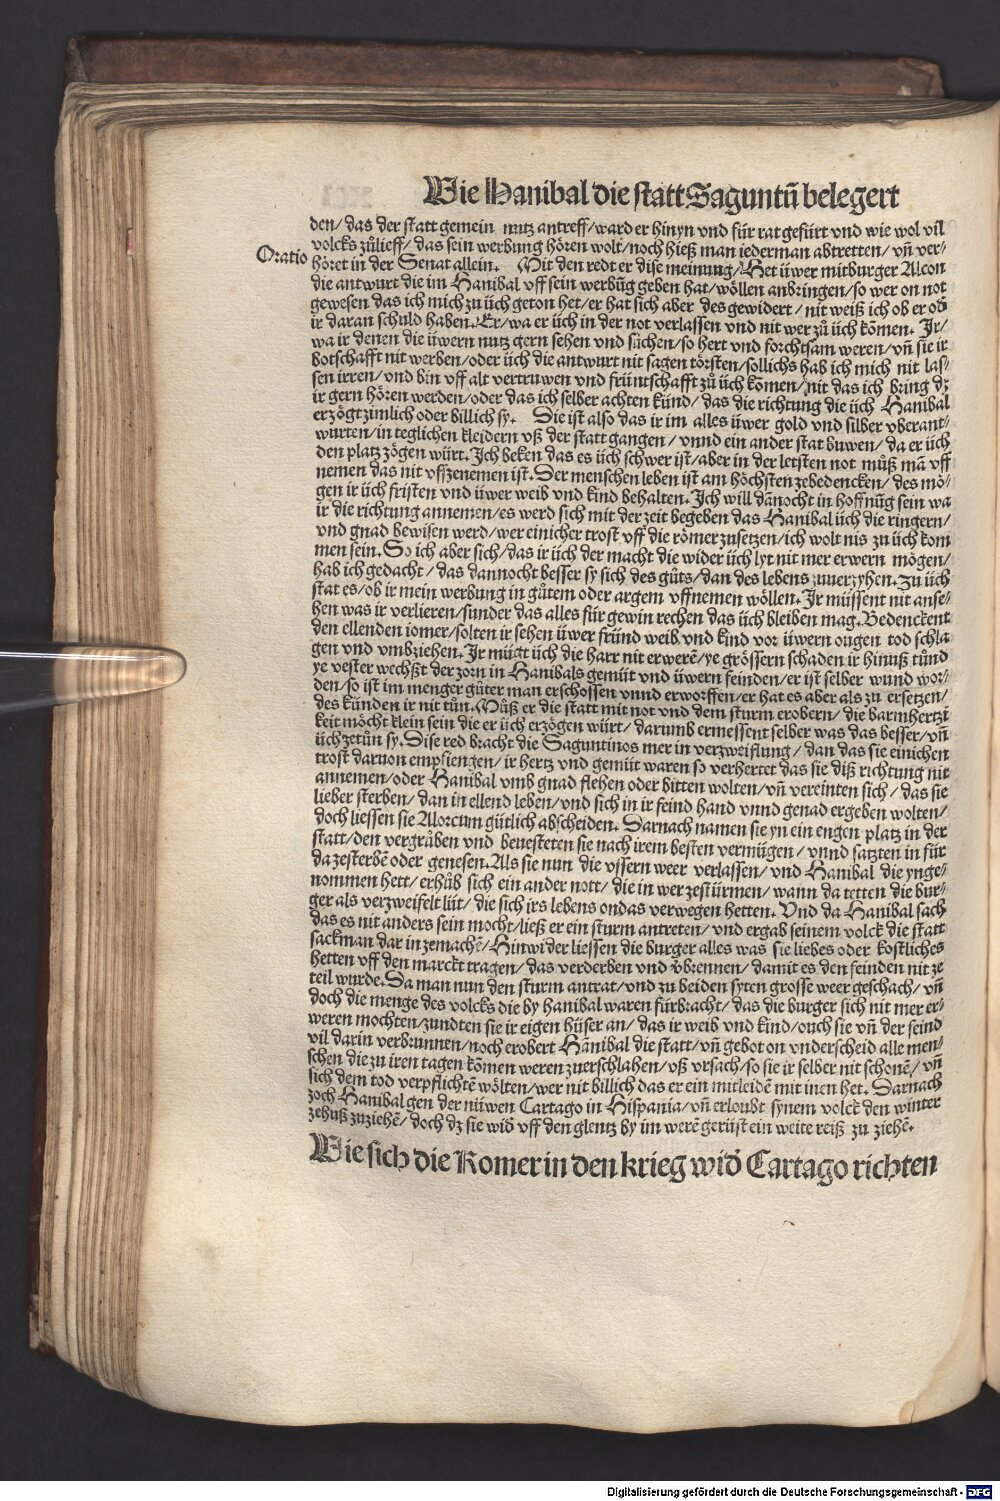 Wie Hanibal die statt Saguntū belegert
den/ das der statt gemein nutz antreff/ ward er hinyn vnd für rat gefürt vnd wie wol vil
volcks zůlieff/ das sein werbung hören wolt/ noch hieß man iederman abtretten/ vñ ver⸗
Oratio
höret in der Senat allein. Mit den redt er dise meinung/ Het üwer mitburger Alcon
die antwurt die im Hanibal vff sein werbūg geben hat/ wöllen anbringen/ so wer on not
gewesen das ich mich zu üch geton het/ er hat sich aber des gewidert/ nit weiß ich ob er od̄
ir daran schuld haben. Er/ wa er üch in der not verlassen vnd nit wer zů üch kōmen. Ir/
wa ir denen die üwern nutz gern sehen vnd sůchen/ so hert vnd forchtsam weren/ vñ sie ir
botschafft nit werben/ oder üch die antwurt nit sagen törsten/ sollichs hab ich mich nit las⸗
sen irren/ vnd bin vff alt vertruwen vnd früntschafft zů üch komen/ nit das ich bring dz
ir gern hören werden/ oder das ich selber achten künd/ das die richtung die üch Hanibal
erzögt zimlich oder billich sy. Die ist also das ir im alles üwer gold vnd silber vberant⸗
wurten/ in teglichen kleidern vß der statt gangen/ vnnd ein ander stat buwen/ da er üch
den platz zögen würt. Ich beken das es üch schwer ist/ aber in der letsten not můß mā vff
nemen das nit vffzenemen ist. Der menschen leben ist am höchsten zebedencken/ des mö⸗
gen ir üch fristen vnd üwer weib vnd kind behalten. Ich will dānocht in hoffnūg sein wa
ir die richtung annemen/ es werd sich mit der zeit begeben das Hanibal üch die ringern/
vnd gnad bewisen werd/ wer einicher trost vff die römer zusetzen/ ich wolt nis zu üch kom
men sein. So ich aber sich/ das ir üch der macht die wider üch lyt nit mer erwern mögen/
hab ich gedacht/ das dannocht besser sy sich des gůts/ dan des lebens zuuerzyhen. Zu üch
stat es/ ob ir mein werbung in gůtem oder argem vffnemen wöllen. Ir müssent nit anse⸗
hen was ir verlieren/ sunder das alles für gewin rechen das üch bleiben mag. Bedenckent
den ellenden iomer/ solten ir sehen üwer fründ weib vnd kind vor üwern ougen tod schla
gen vnd vmbziehen. Ir mügt üch die harr nit erwerē/ ye grössern schaden ir hinuß tůnd
ye vester wechßt der zorn in Hanibals gemüt vnd üwern feinden/ er ist selber wund wor⸗
den/ so ist im menger gůter man erschossen vnnd erworffen/ er hat es aber als zu ersetzen/
des künden ir nit tůn. Můß er die statt mit not vnd dem sturm erobern/ die barmhertzi
keit möcht klein sein die er üch erzögen würt/ darumb ermessent selber was das besser/ vñ
üch zetůn sy. Dise red bracht die Saguntinos mer in verzweiflung/ dan das sie einichen
trost daruon empfiengen/ ir hertz vnd gemüt waren so verhertet das sie diß richtung nit
annemen/ oder Hanibal vmb gnad flehen oder bitten wolten/ vñ vereinten sich/ das sie
lieber sterben/ dan in ellend leben/ vnd sich in ir feind hand vnnd genad ergeben wolten/
doch liessen sie Alorcum gütlich abscheiden. Darnach namen sie yn ein engen platz in der
statt/ den vergrůben vnd beuesteten sie nach irem besten vermügen/ vnnd satzten in für
da zesterbē oder genesen. Als sie nun die vssern weer verlassen/ vnd Hanibal die ynge⸗
nommen hett/ erhůb sich ein ander nott/ die in wer zestürmen/ wann da tetten die bur⸗
ger als verzweifelt lüt/ die sich irs lebens ondas verwegen hetten. Vnd da Hanibal sach
das es nit anders sein mocht/ ließ er ein sturm antreten/ vnd ergab seinem volck die statt
sackman dar in zemachē/ Hinwider liessen die burger alles was sie liebes oder kostliches
hetten vff den marckt tragen/ das verderben vnd v̄brennen/ damit es den feinden nit ze
teil wurde. Da man nun den sturm antrat/ vnd zu beiden syten grosse weer geschach/ vñ
doch die menge des volcks die by hanibal waren fürbracht/ das die burger sich nit mer er⸗
weren mochten/ zundten sie ir eigen hüser an/ das ir weib vnd kind/ ouch sie vñ der feind
vil darin verbrunnen/ noch erobert Hānibal die statt/ vñ gebot on vnderscheid alle men⸗
schen die zu iren tagen kōmen weren zuerschlahen/ vß vrsach/ so sie ir selber nit schonē/ vñ
sich dem tod verpflichtē wölten/ wer nit billich das er ein mitleidē mit inen het. Darnach
zoch Hanibal gen der nüwen Cartago in Hispania/ vñ erloubt synem volck den winter
zehuß zuziehē/ doch dz sie wid̄ vff den glentz by im werē gerüst ein weite reiß zu ziehē.
Wie sich die Romer in den krieg wid̄ Cartago richten
Digitalisierung gefördert durch die Deutsche Forschungsgemeinschaft - DFG